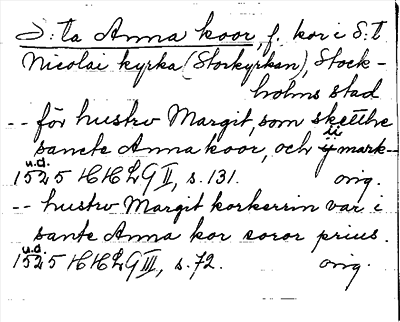 S:ta Anna koor, f. kor i S:t
Nicolai kyrka (Storkyrkan), Stock-
holms stad
-- för hustrv Margit, som skötthe
sancte Anna koor, och ij mark--
u.d.
1525 HHLG II, s. 131. orig.
-- hustrv Margit korkerrin var i
sante Anna kor soror prius.
u.d.
1525 HHLG III, s. 72. orig.